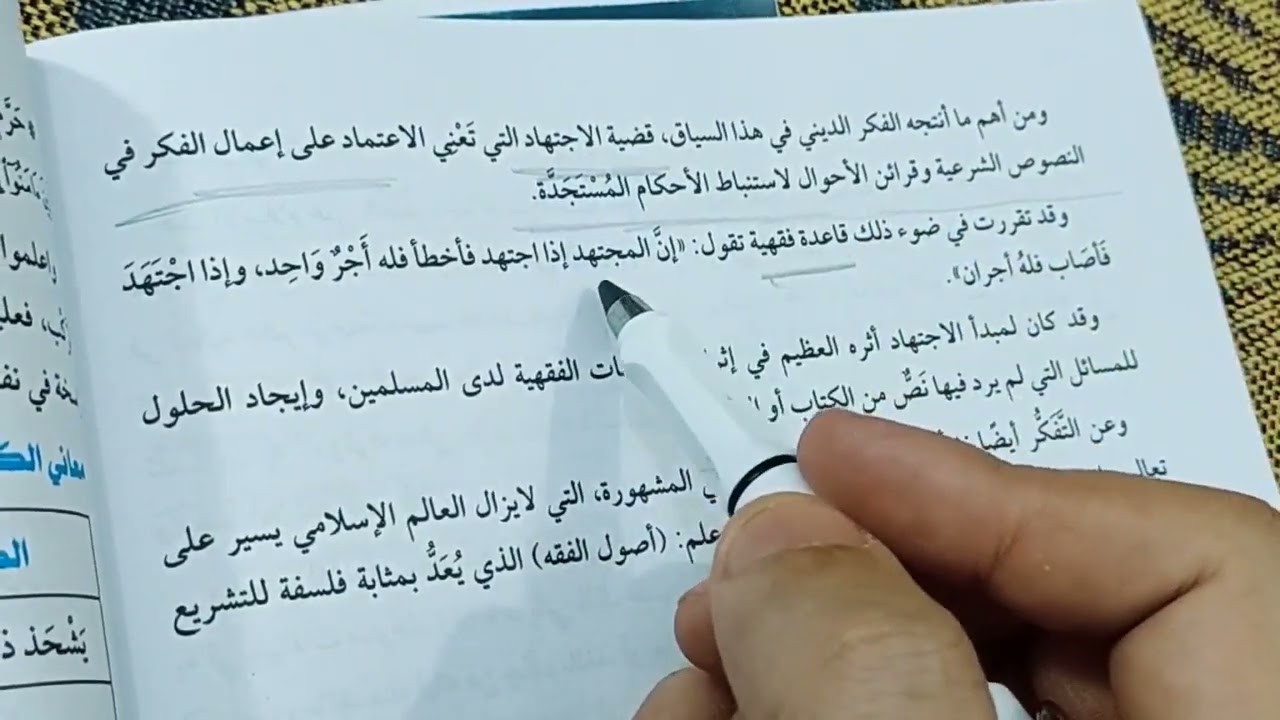 ومن أهم ما أنتجه الفكر الديني في هذا السياق، قضية الاجتهاد التي تَعْنِي الاعتماد على إعمال الفكر في
النصوص الشرعية وقرائن الأحوال لاستنباط الأحكام المُسْتَجَدَّة.
وقد تقررت في ضوء ذلك قاعدة فقهية تقول: «إنَّ المجتهد إذا اجتهد فأخطأ فله أَجْرٌ وَاحِد، وإذا اجْتَهَدَ
فَأَصَاب فلهُ أجران».
وقد كان لمبدأ الاجتهاد أثره العظيم في الفقهية لدى المسلمين، وإيجاد الحلول
للمسائل التي لم يرد فيها نَصٌّ من الكتاب أو
وعن التَّفَكُّر أيضًا
المشهورة، التي لايزال العالم الإسلامي يسير على
تعالى
علم: (أصول الفقه) الذي يُعَدُّ بمثابة فلسفة للتشريع
واعلموا
معاني
بَشْحَذ